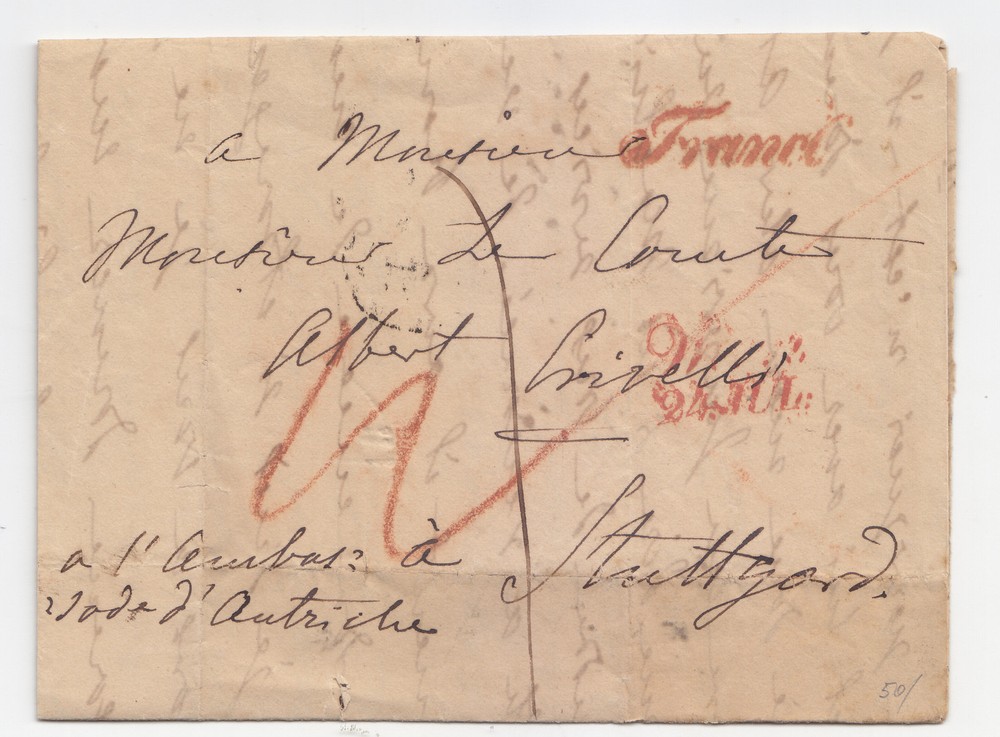 a Monsieur
Franco
Monsieur Le Comte
Albert Crivelli
24.JUL:
a l'Ambas= à Stuttgard.
=sade d'Autriche
50/